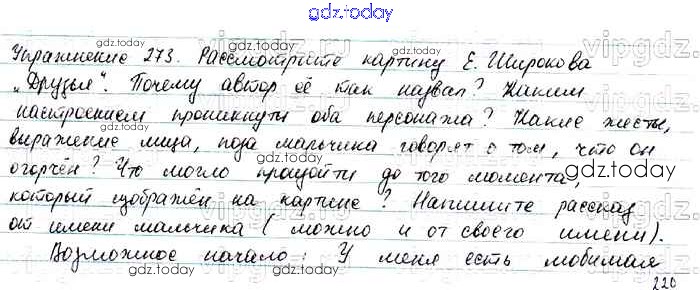 gdz.today
Упражнение 273. Рассмотрите картину Е. Широкова
„Друзья“. Почему автор её так назвал? Каким
настроением проникнуты оба персонажа? Какие жесты,
выражение лица, поза мальчика говорят о том, что он
огорчён? Что могло произойти до того момента,
который изображён на картине? Напишите рассказ
от имени мальчика (можно и от своего имени).
Возможное начало: У меня есть любимая
220